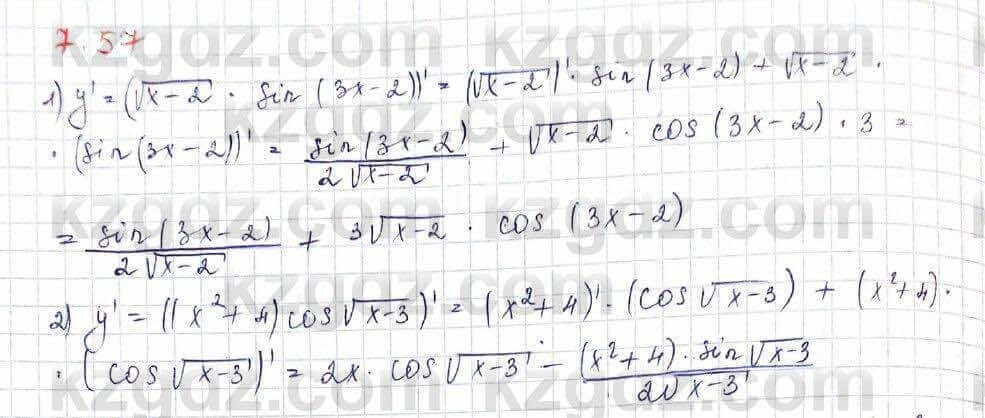 7.57
1) y' = (√x-2 · sin (3x-2))' = (√x-2)' · sin (3x-2) + √x-2 ·
· (sin (3x-2))' = sin (3x-2) / 2√x-2 + √x-2 · cos (3x-2) · 3 =
= sin (3x-2) / 2√x-2 + 3√x-2 · cos (3x-2)
2) y' = ((x²+4) cos √x-3)' = (x²+4)' · (cos √x-3) + (x²+4) ·
· (cos √x-3)' = 2x · cos √x-3 - (x²+4) · sin √x-3 / 2√x-3
kzgdz.com kzgdz.com
kzgdz.com
kzgdz.com kzgdz.com
kzgdz.com
kzgdz.com kzgdz.com